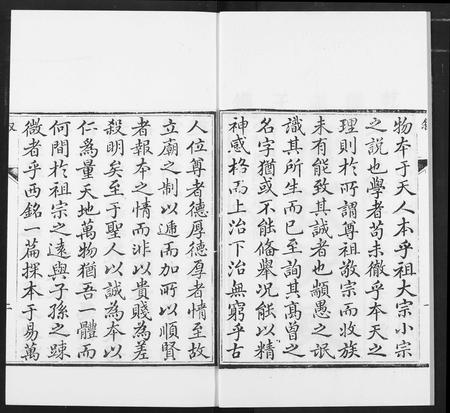 物本于天人本乎祖大宗小宗
之說也學者苟未徹乎奉天之
理則於所謂尊祖敬宗而收族
未有能致其誠者也顓愚之氓
識其所生而已至詢其高曾之
名字猶或不能備舉况能以精
神感格而上治下治無窮乎古
人位尊者德厚德厚者情至故
立廟之制以遞而加所以順賢
者報本之情而非以貴賤為差
殺明矣至于聖人以誠為本以
仁為量天地萬物猶吾一體而
何間於祖宗之遠與子孫之疎
微者乎西銘一篇探本于易萬